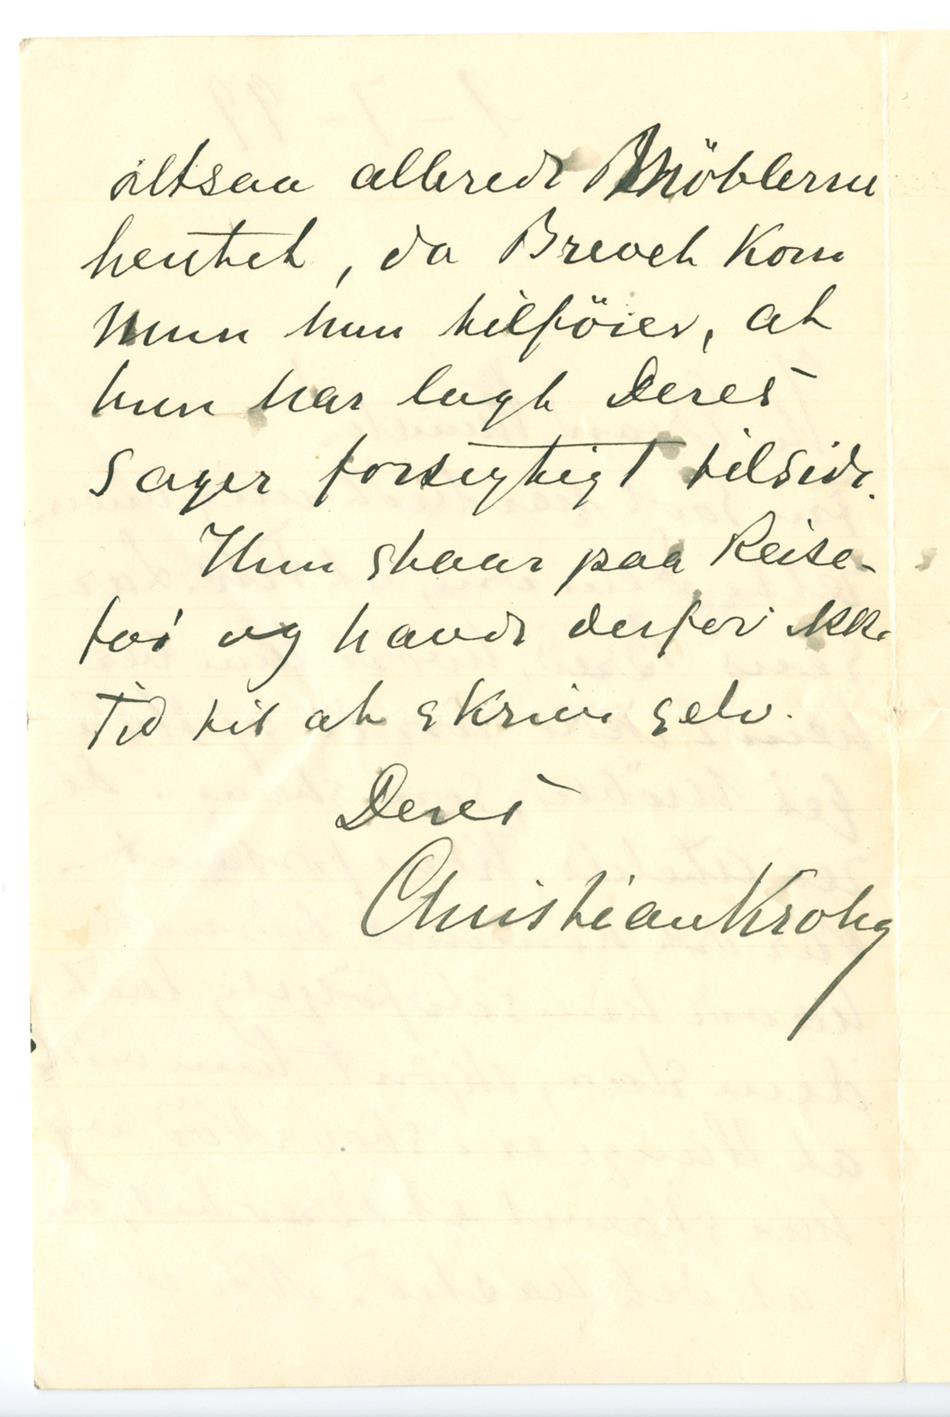 altsaa allerede Möblerne
hentet, da Brevet kom
men hun tilföier, at
hun har lagt Deres
Sager forsigtigt tilside.
Hun staar paa Reise-
fod og havde derfor ikke
Tid til at skrive selv.
Deres
Christian Krohg